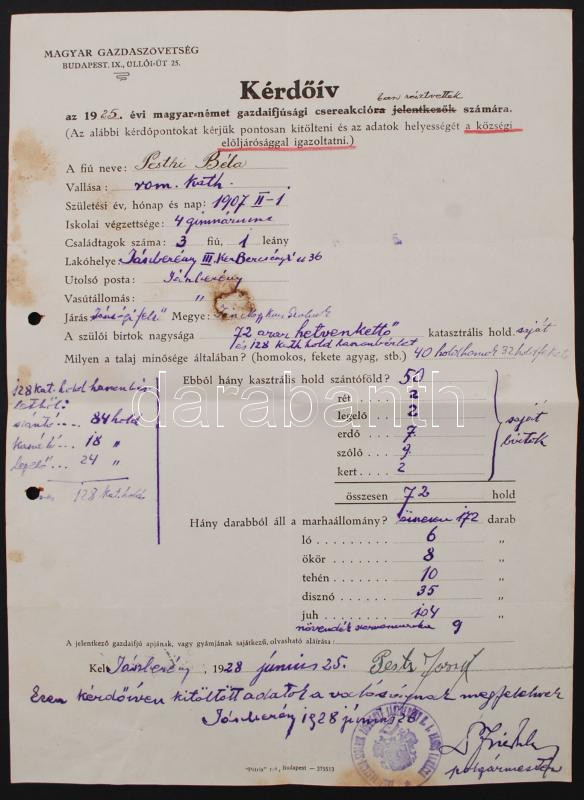 MAGYAR GAZDASZÖVETSÉG
BUDAPEST, IX., ÜLLŐI-ÚT 25.
Kérdőív
ban résztvettek
az 1925. évi magyar-német gazdaifjúsági csereakcióra jelentkezők számára.
(Az alábbi kérdőpontokat kérjük pontosan kitölteni és az adatok helyességét a községi
elöljárósággal igazoltatni.)
A fiú neve: Béla
Vallása: rom. kath.
Születési év, hónap és nap: 1907 II-1
Iskolai végzettsége: 4 gimnázium
Családtagok száma: 3 fiú, 1 leány
Lakóhelye: Jászberény III. Ker Bercsényi u 36
Utolsó posta: Jászberény
Vasútállomás: "
Járás Megye:
A szülői birtok nagysága 72 azaz hetvenkettő katasztrális hold. saját
és 128 kath hold haszonbérlet
Milyen a talaj minősége általában? (homokos, fekete agyag, stb.) 40 hold homok 32 hold fekete
Ebből hány kasztrális hold szántóföld? 50
rét 2
legelő 2
erdő 7
szőlő 9
kert 2
saját birtok
összesen 72 hold
128 kat. hold haszonbér
letből:
szántó... 84 hold
kaszáló... 18 "
legelő... 24 "
128 kat. hold
Hány darabból áll a marhaállomány? összesen 172 darab
ló 6 "
ökör 8 "
tehén 10 "
disznó 35 "
juh 104 "
növendék szarvasmarha 9
A jelentkező gazdaifjú apjának, vagy gyámjának sajátkezű, olvasható aláírása:
Kelt Jászberény, 1928 június 25. József
Ezen kérdőíven kitöltött adatok a valóságnak megfelelnek
Jászberény 1928 június 26
polgármester
"Pátria" r.-t., Budapest — 275513
darabanth